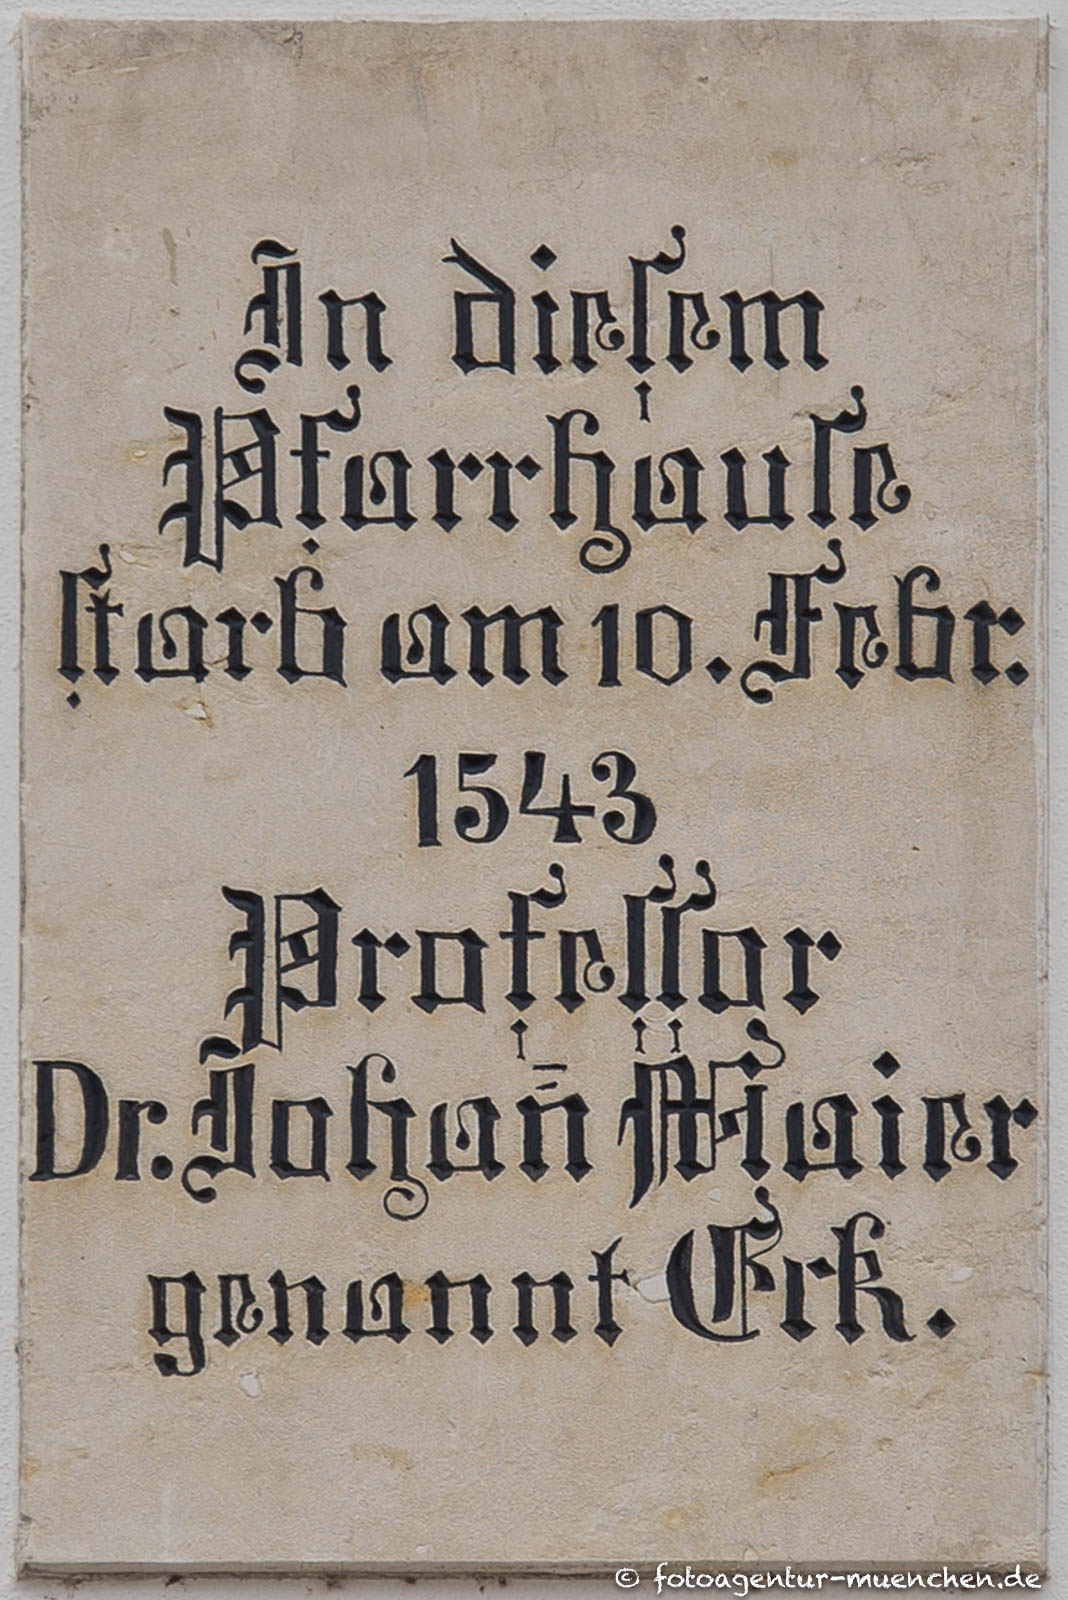 In diesem
Pfarrhause
starb am 10. Febr.
1543
Professor
Dr. Johan̄ Maier
genannt Erk.
© fotoagentur-muenchen.de